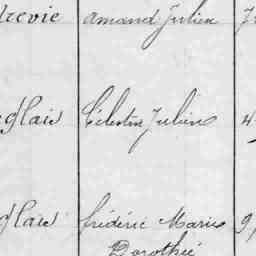 drevie Amand Julien
glais Célestin Julien 4
glais frédéric Marie 9
Dorothée